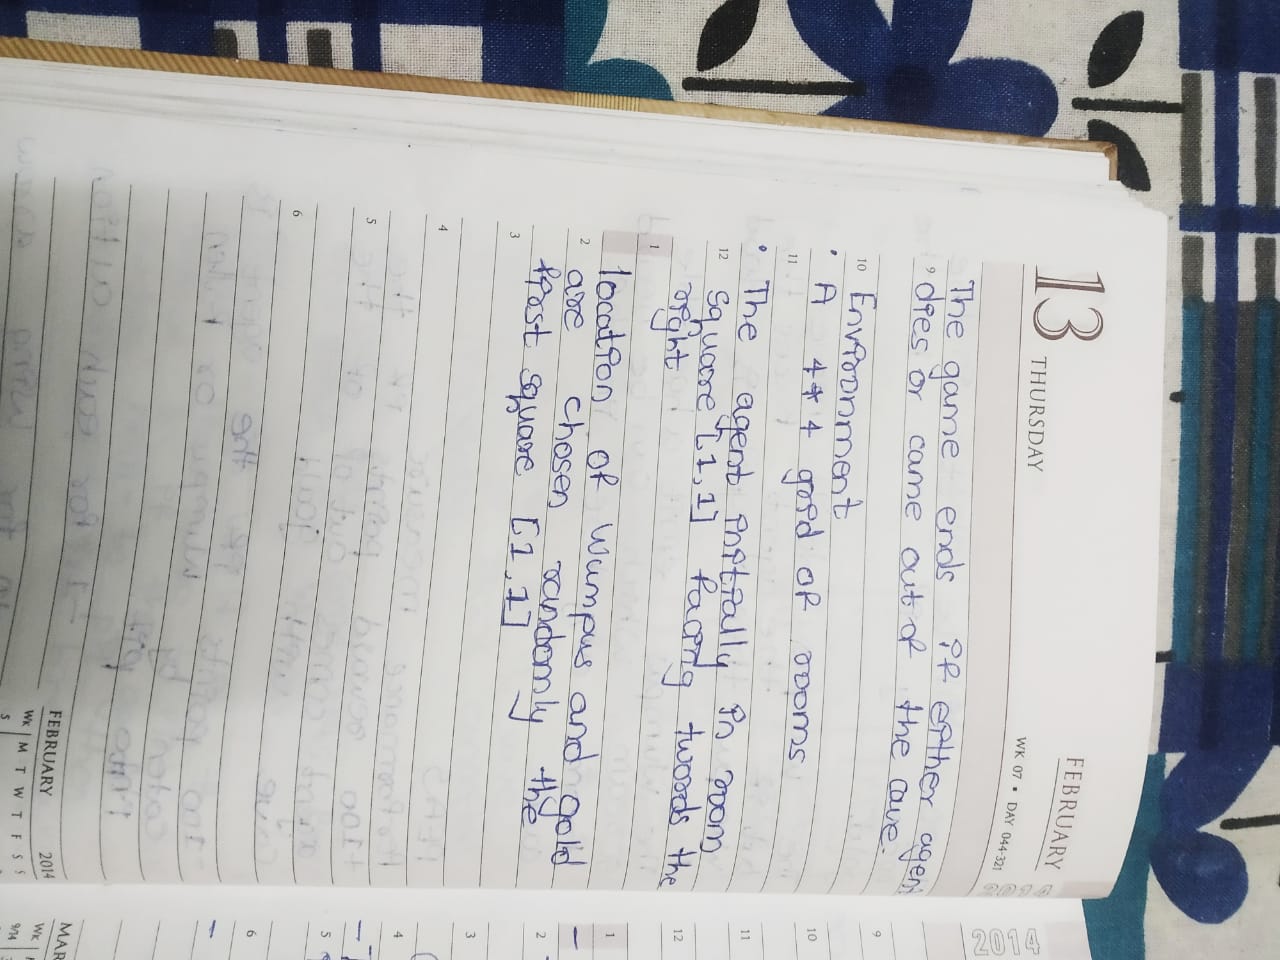 13 THURSDAY
FEBRUARY
WK 07 • DAY 044-321
The game ends if either agent
9 dies or came out of the cave.
10 Environment
• A 4*4 grid of rooms
11
• The agent initially in room
12 square [1,1] facing twords the
right
1
location of Wumpus and gold
2 are chosen randomly the
first square [1,1]
3
4
5
6
FEBRUARY 2014
WK M T W T F S S
5
2014
9
10
11
12
1
2
3
4
5
6
MAR
WK
9/14